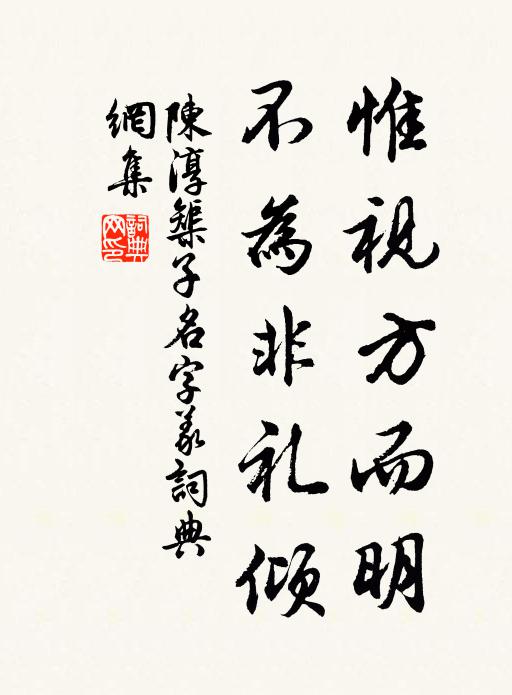 惟視方而明
不為非礼傾
陳淳榘子名字義詞典
網集
詞典网印